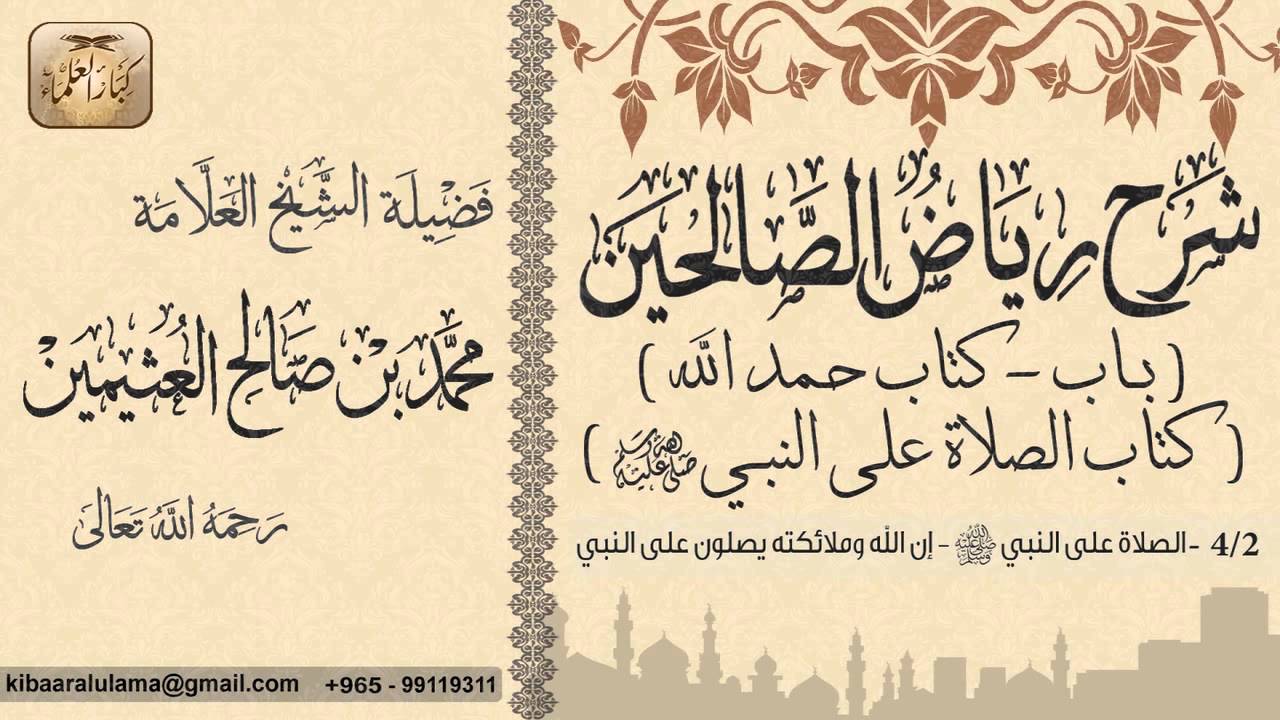 شَرْح رِيَاضُ الصَّالحِينَ
( باب - كتاب حمد الله )
( كتاب الصلاة على النبي ﷺ )
4/2 - الصلاة على النبي ﷺ - إن الله وملائكته يصلون على النبي
كِبَارُ العُلَمَاء
فَضِيلَة الشَّيْخ العَلَّامَة
محمَّد بْنْ صَالح العُثيمِينْ
رَحِمَهُ اللَّهُ تَعَالىَ
kibaaralulama@gmail.com +965 - 99119311